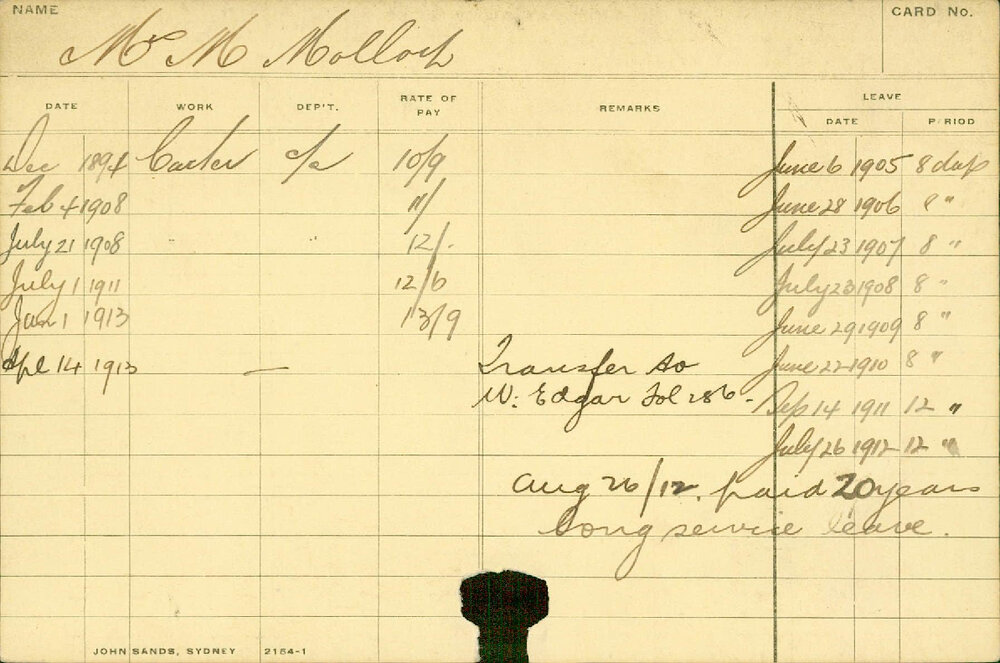 NAME
CARD No.
Mr M Molloch
DATE WORK DEP'T. RATE OF PAY REMARKS LEAVE
DATE PERIOD
Dec 1894 Carter c/a 10/9 June 6 1905 8 days
Feb 4 1908 11/ June 28 1906 8 "
July 21 1908 12/- July 23 1907 8 "
July 1 1911 12/6 July 23 1908 8 "
Jan 1 1913 13/9 June 29 1909 8 "
Apl 14 1913 — Transfer to June 22 1910 8 "
W. Edgar Fol 286- Sep 14 1911 12 "
July 26 1912 12 "
Aug 26/12. paid 20 years
long service leave.
JOHN SANDS, SYDNEY 2154-1